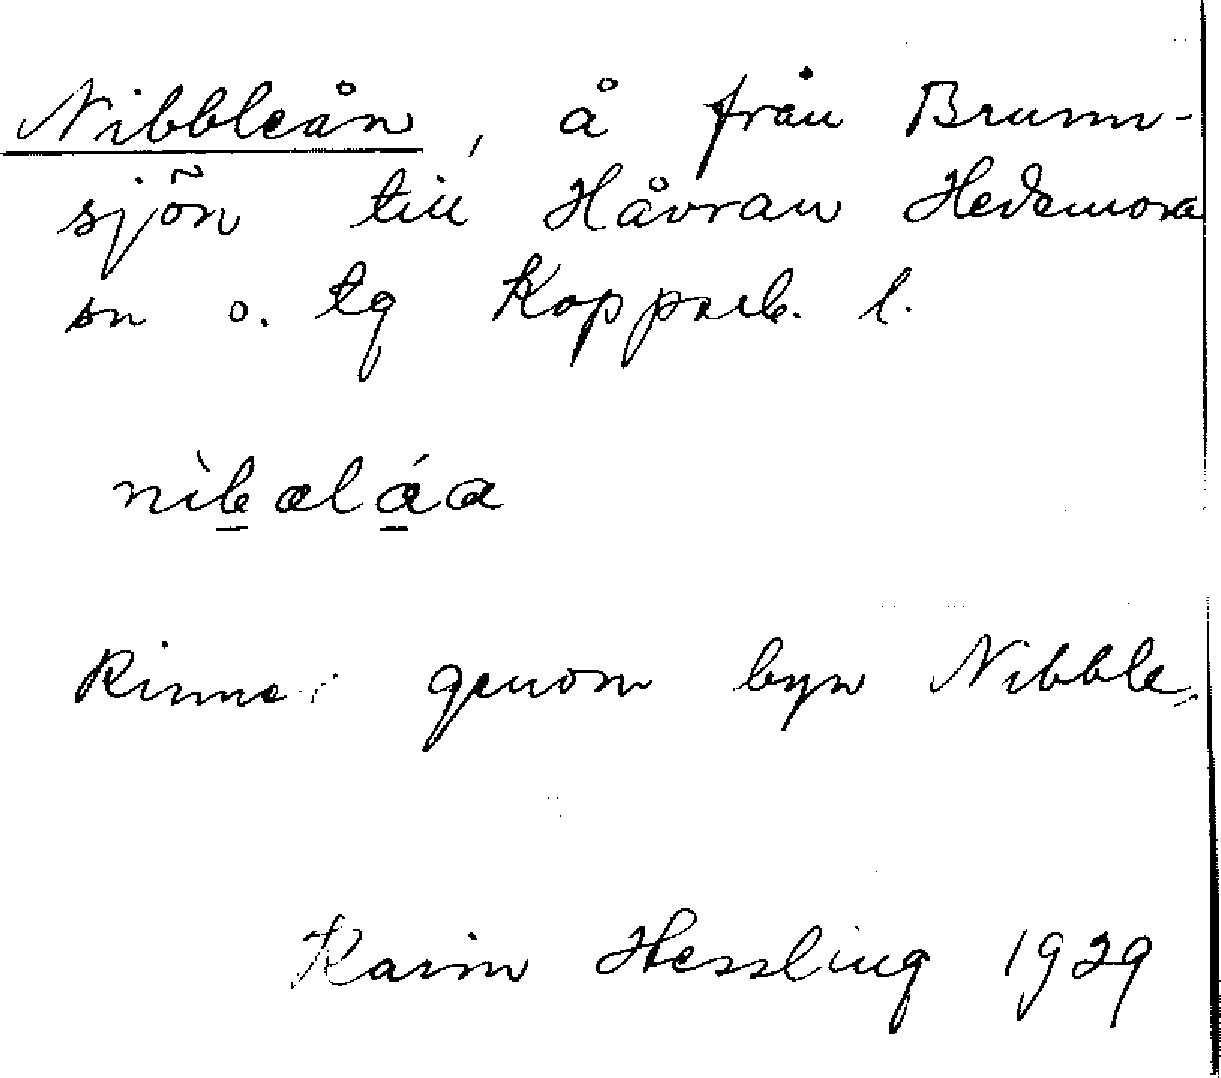 Nibbleån, å från Brunn-
sjön till Håvran Hedemora
sn o. tg Kopparb. l.
nìb̲ælá̲a
Rinner genom byn Nibble.
Karin Hessling 1929